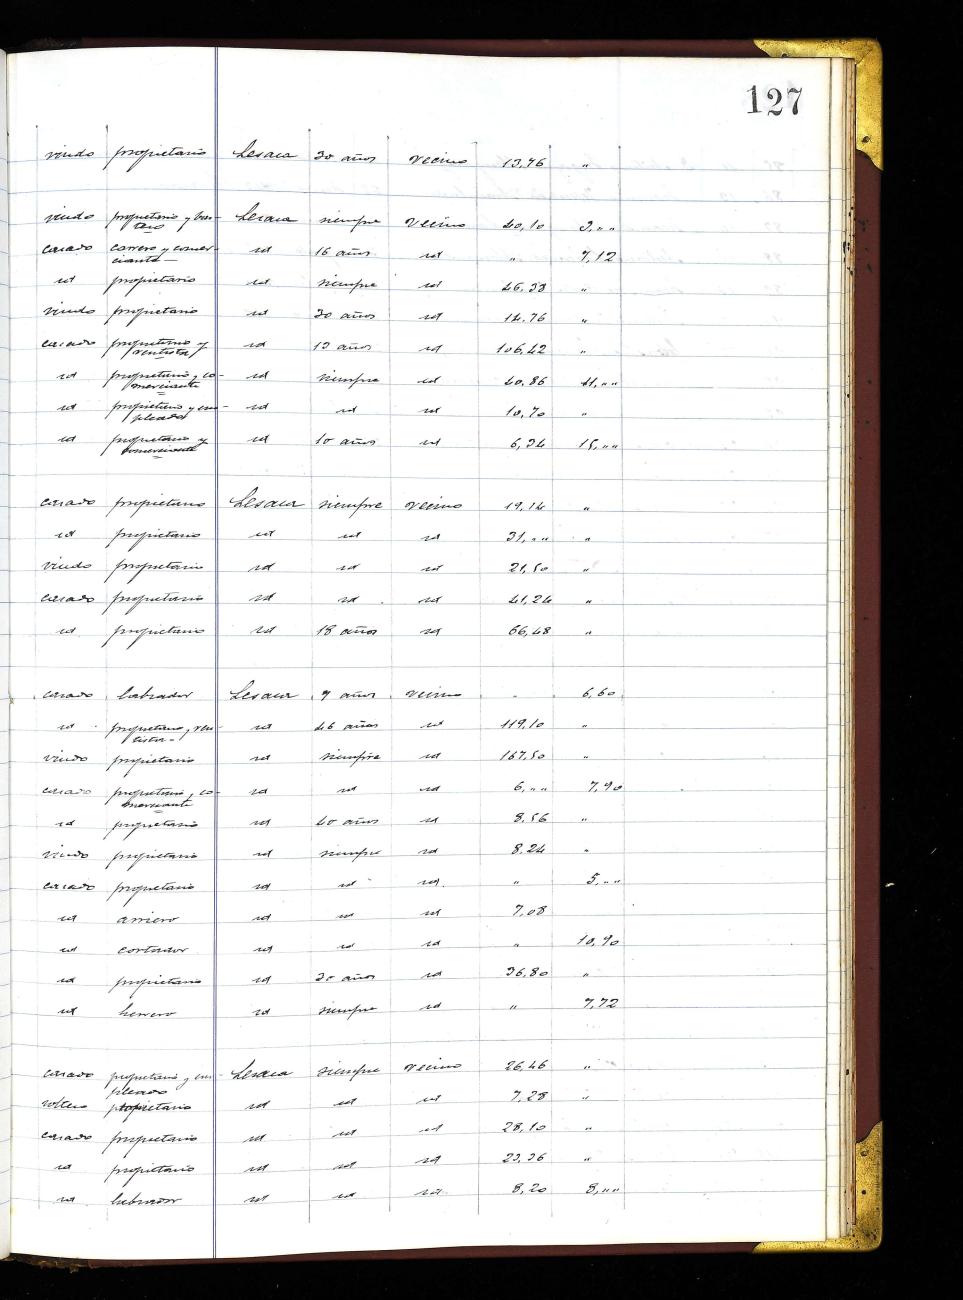 127
viudo propietario Lesaca 30 años vecino 13,76 "
viudo propietario y Lesaca siempre vecino 40,10 3,""
casado carrero y comer- id 16 años id " 7,12
ciante
id propietario id siempre id 46,38 "
viudo propietario id 30 años id 14,76 "
casado propietario y id 13 años id 106,42 "
rentista
id propietario y co- id siempre id 40,86 41,""
merciante
id propietario y em- id id id 10,70 "
pleado
id propietario y id 10 años id 6,34 15,""
comerciante
casado propietario Lesaca siempre vecino 19,14 "
id propietario id id id 31,"" "
viudo propietario id id id 21,50 "
casado propietario id id id 41,24 "
id propietario id 18 años id 66,48 "
casado labrador Lesaca 9 años vecino " 6,60
id propietario y ren- id 46 años id 119,10 "
tista
viudo propietario id siempre id 167,50 "
casado propietario y co- id id id 6,"" 7,90
merciante
id propietario id 40 años id 8,56 "
viudo propietario id siempre id 8,24 "
casado propietario id id id " 5,""
id arriero id id id 7,08
id cortador id id id " 10,90
id propietario id 30 años id 36,80 "
id herrero id siempre id " 7,72
casado propietario y em- Lesaca siempre vecino 26,46 "
pleado
soltero propietario id id id 7,28 "
casado propietario id id id 28,10 "
id propietario id id id 23,36 "
id labrador id id id 8,20 8,""